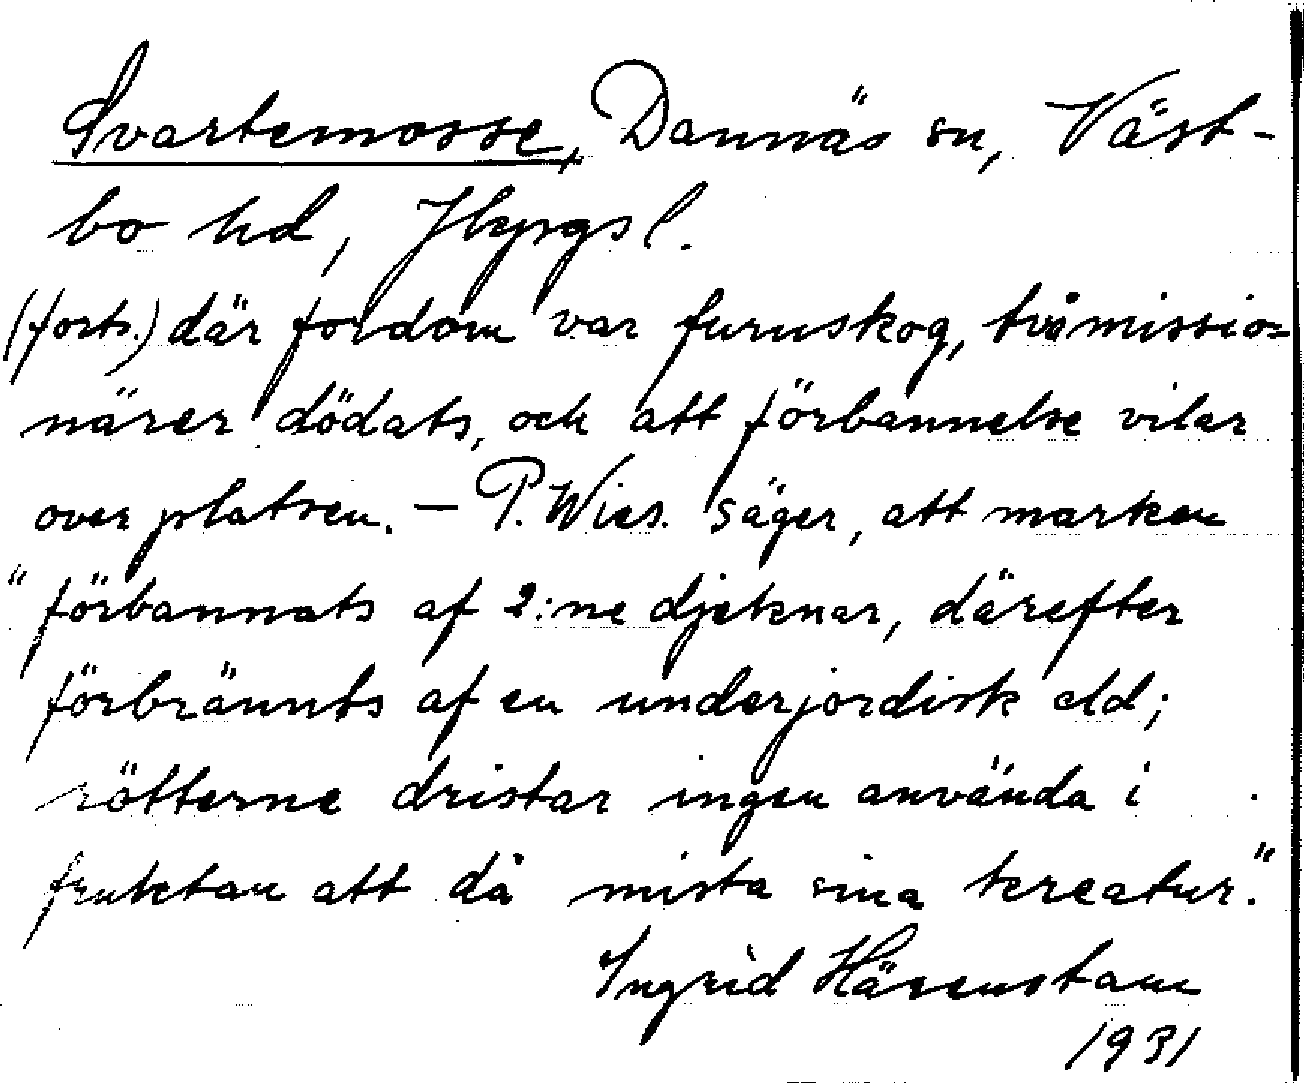 Svartemosse, Dannäs sn, Väst-
bo hd, Jkpgsl.
(forts.) där fordom var furuskog, två missio-
närer dödats, och att förbannelse vilar
över platsen. — P. Wies. säger, att marken
"förbannats af 2:ne djeknar, därefter
förbrännts af en underjordisk eld;
rötterne dristar ingen använda i
fruktan att då mista sina kreatur."
Ingrid Härenstam
1931